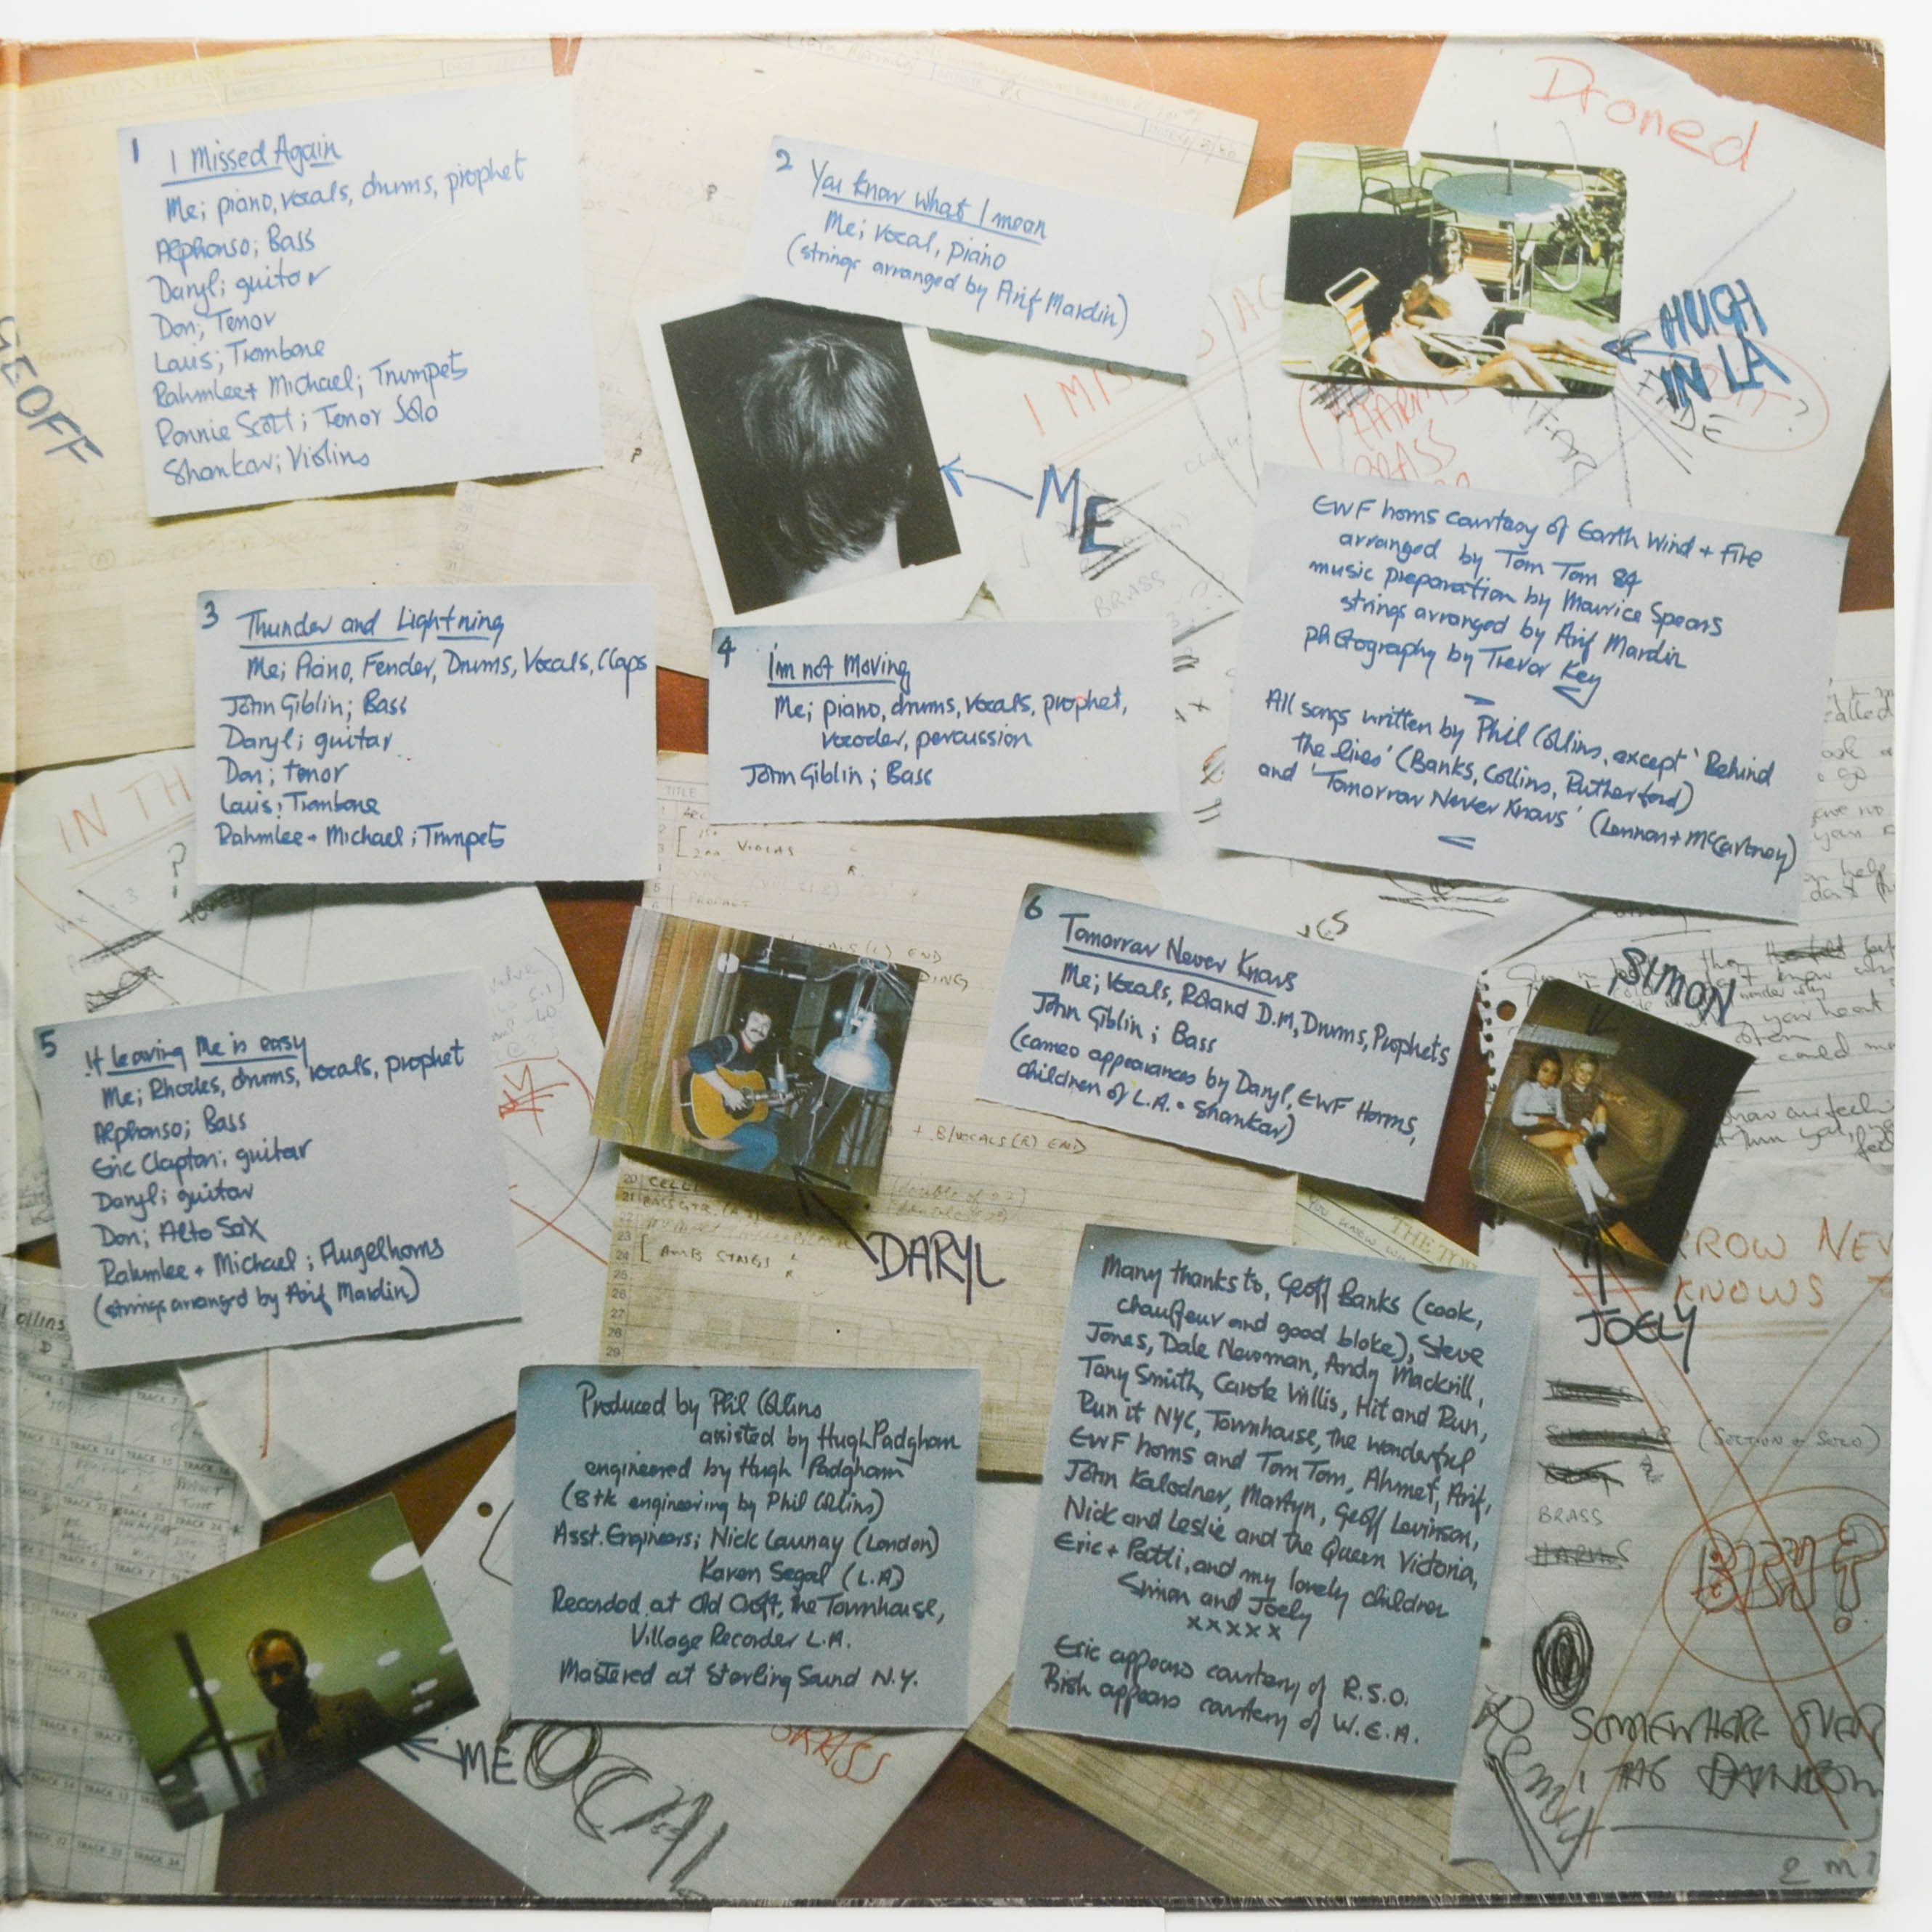 Droned
GEOFF
1
I Missed Again
Me; piano, vocals, drums, prophet
Alphonso; Bass
Daryl; guitar
Don; Tenor
Louis; Trombone
Rahmlee + Michael; Trumpets
Ronnie Scott; Tenor Solo
Shankar; Violins
2
You know what I mean
Me; vocal, piano
(strings arranged by Arif Mardin)
HUGH
IN LA
I MIS
BRASS
ME
BRASS
EWF horns courtesy of Earth Wind + Fire
arranged by Tom Tom 84
music preparation by Maurice Spears
strings arranged by Arif Mardin
photography by Trevor Key
All songs written by Phil Collins, except 'Behind
the lines' (Banks, Collins, Rutherford)
and 'Tomorrow Never Knows' (Lennon + McCartney)
3
Thunder and Lightning
Me; Piano, Fender, Drums, Vocals, Claps
John Giblin; Bass
Daryl; guitar
Don; tenor
Louis; Trombone
Rahmlee + Michael; Trumpets
4
I'm not Moving
Me; piano, drums, vocals, prophet,
vocoder, percussion
John Giblin; Bass
IN TH
TITLE
VIOLAS
PROPHET
END
+ B/VOCALS (R) END
20 CELLI
23
24 AMB STNGS
25
26
27
28
29
5
If leaving Me is easy
Me; Rhodes, drums, vocals, prophet
Alphonso; Bass
Eric Clapton; guitar
Daryl; guitar
Don; Alto Sax
Rahmlee + Michael; Flugelhorns
(strings arranged by Arif Mardin)
6
Tomorrow Never Knows
Me; Vocals, Roland D.M, Drums, Prophets
John Giblin; Bass
(cameo appearances by Daryl, EWF Horns,
children of L.A. + Shankar)
SIMON
DARYL
JOELY
THE TO
RROW NEV
KNOWS
Produced by Phil Collins
assisted by Hugh Padgham
engineered by Hugh Padgham
(8tk engineering by Phil Collins)
Asst. Engineers; Nick Launay (London)
Karen Segal (L.A)
Recorded at Old Croft, the Townhouse,
Village Recorder L.A.
Mastered at Sterling Sound N.Y.
Many thanks to, Geoff Banks (cook,
chauffeur and good bloke), Steve
Jones, Dale Newman, Andy Mackrill,
Tony Smith, Carole Willis, Hit and Run,
Run it NYC, Townhouse, the wonderful
EWF horns and Tom Tom, Ahmet, Arif,
John Kalodner, Martyn, Geoff Levinson,
Nick and Leslie and the Queen Victoria,
Eric + Patti, and my lovely children
Simon and Joely
xxxxx
Eric appears courtesy of R.S.O.
Bish appears courtesy of W.E.A.
BRASS
ME
BRASS
SOMEWHERE OVER
THE RAINBOW